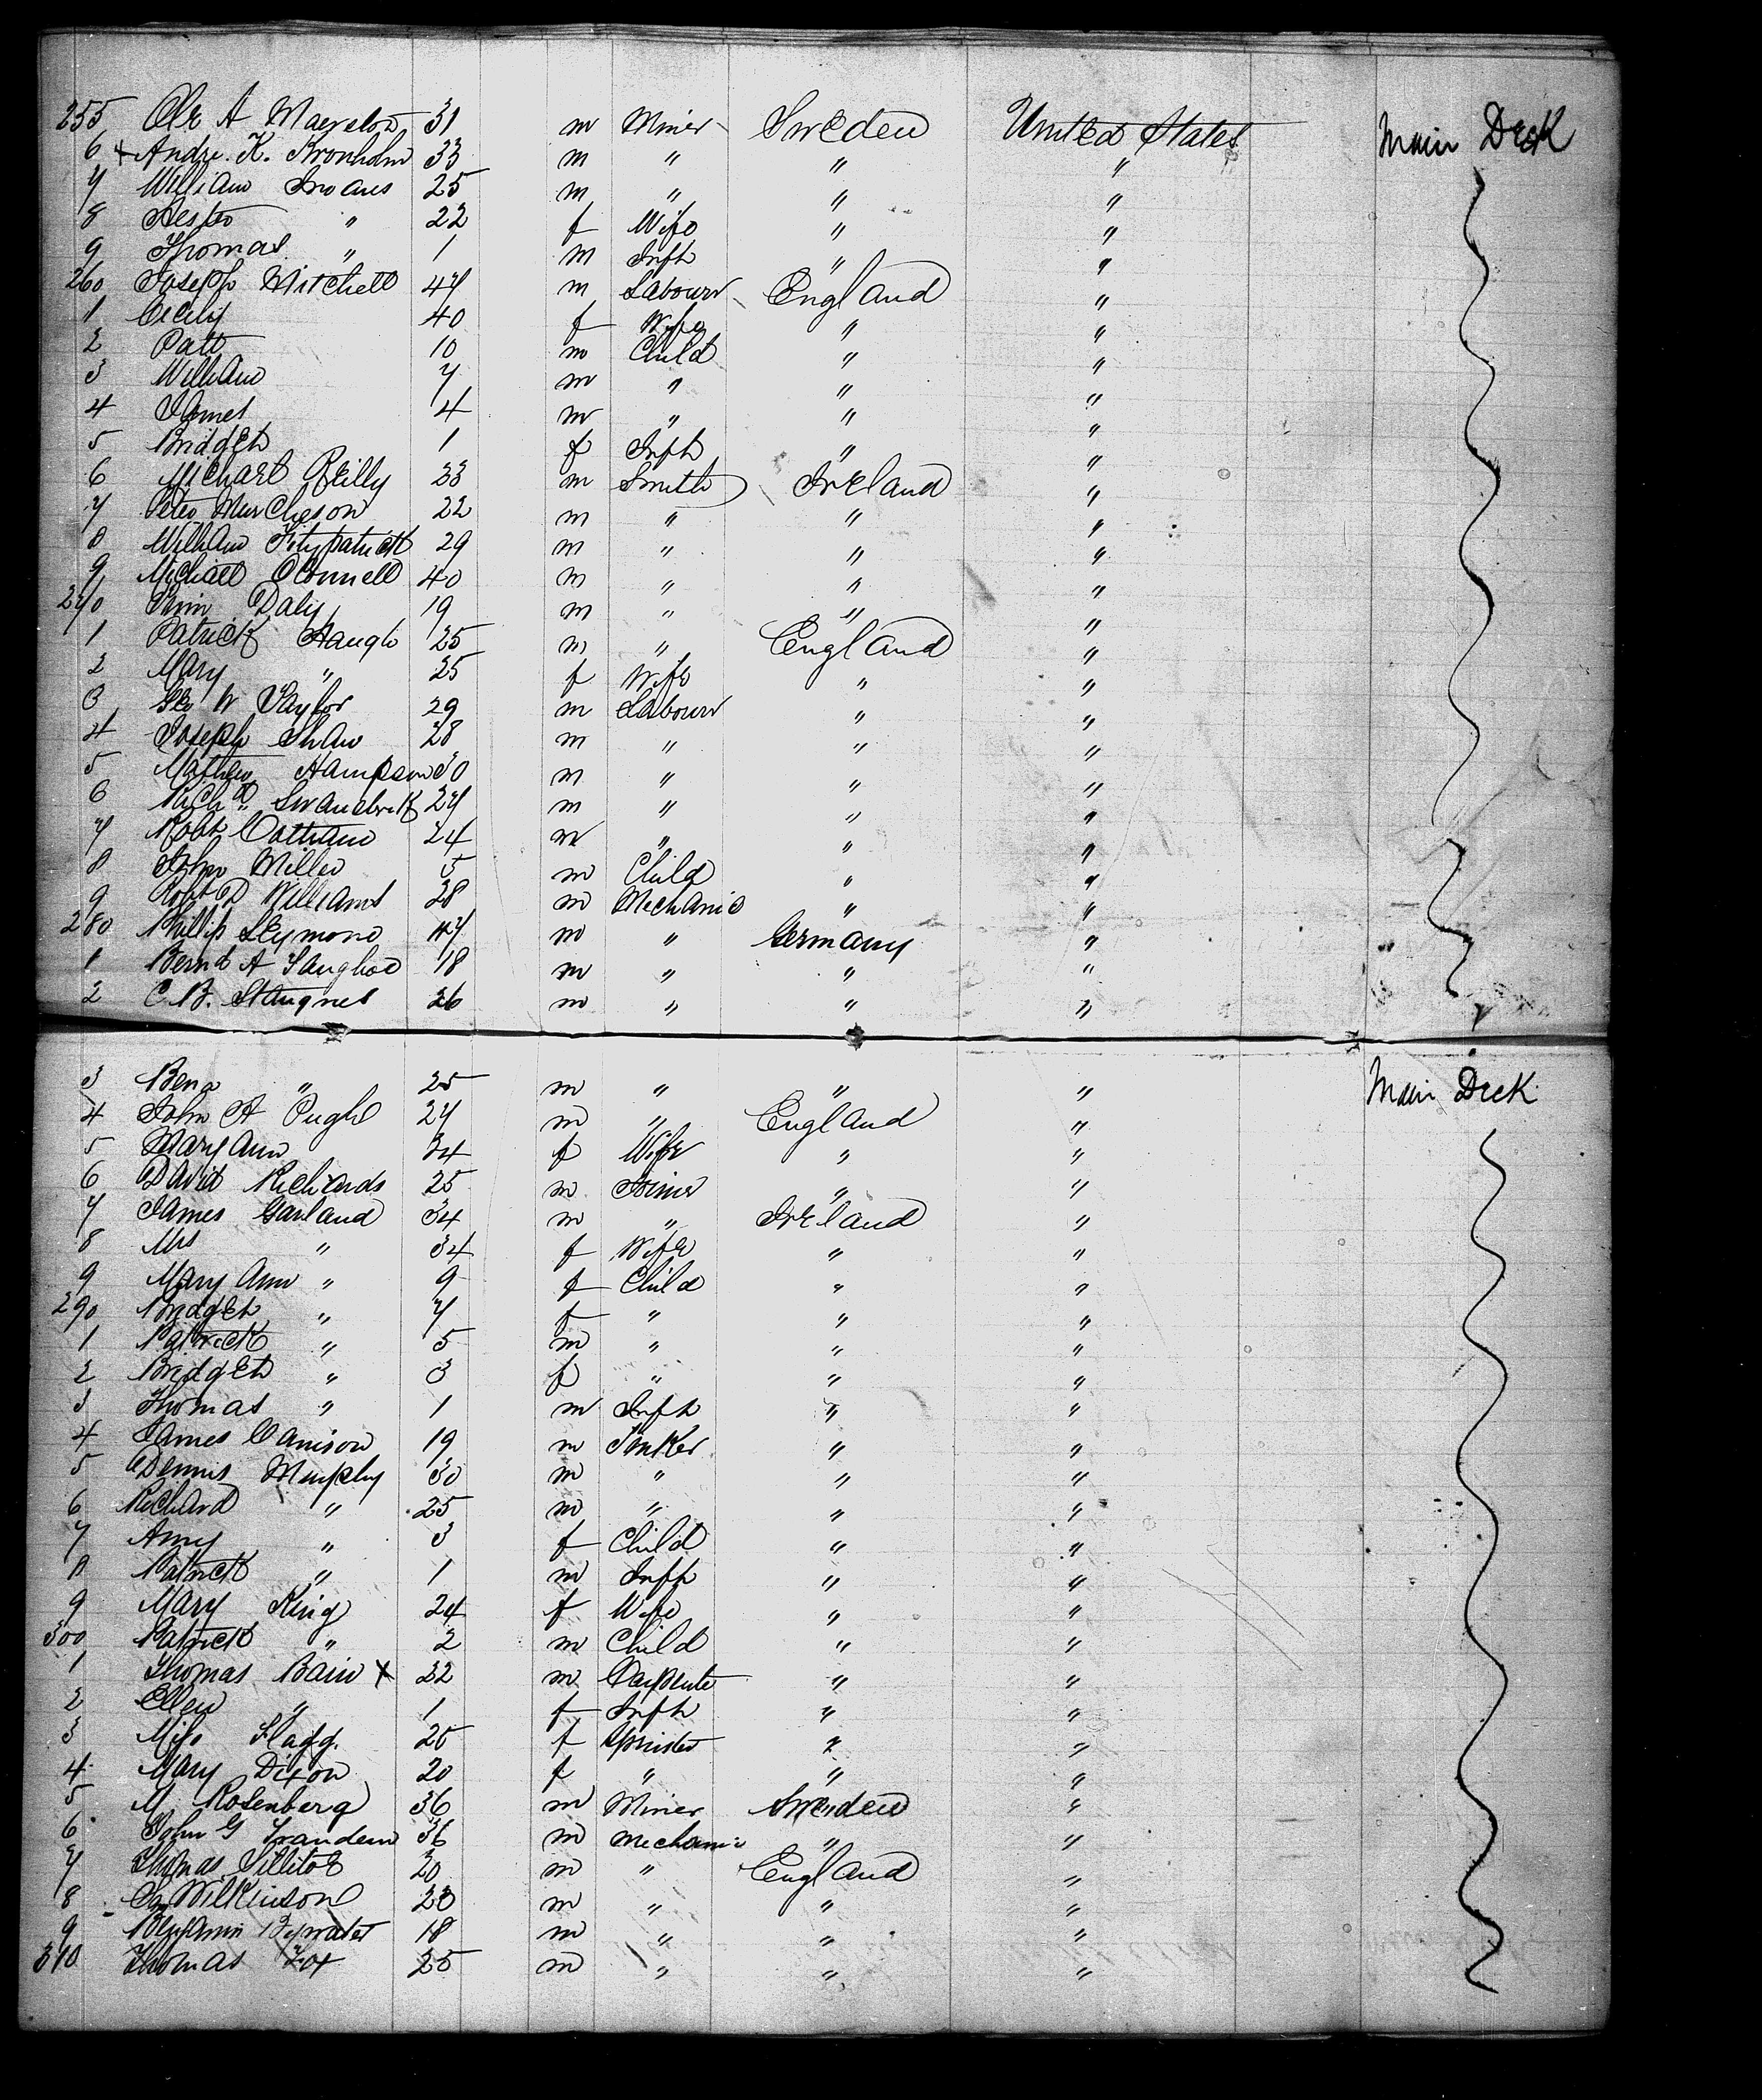 255 Ole A 31 m Miner Sweden United States Main Deck
6 + Andr. K. Kronholm 33 m " " "
7 William 25 m " " "
8 " 22 f Wife " "
9 Thomas " 1 m Inft " "
260 Joseph Mitchell 47 m Labourr England "
1 Cecily 40 f Wife " "
2 Patt 10 m Child " "
3 William 7 m " " "
4 James 4 m " " "
5 Bridget 1 f Inft " "
6 Michael Reilly 23 m Smith Ireland "
7 Peter Murcheson 22 m " " "
8 William Fitzpatrick 29 m " " "
9 Michael OConnell 40 m " " "
270 Daly 19 m " " "
1 Patrick Haugh 25 m " England "
2 Mary " 25 f Wife " "
3 Geo W Taylor 29 m Labourr " "
4 Joseph Shaw 28 m " " "
5 Mathew Hampson 30 m " " "
6 Richd Swanbrick 27 m " " "
7 Robt 24 m " " "
8 John Miller 5 m Child " "
9 Robt D Williams 28 m Mechanic " "
280 Phillip 47 m " Germany "
1 Bernd A 18 m " " "
2 C. B. 26 m " " "
3 " 25 m " " " Main Deck
4 John A Pugh 27 m " England "
5 Mary Ann 34 f Wife " "
6 David Richards 25 m Joiner " "
7 James Garland 34 m " Ireland "
8 Mrs " 34 f Wife " "
9 Mary Ann " 9 f Child " "
290 Bridget " 7 f " " "
1 Patrick " 5 m " " "
2 Bridget " 3 f " " "
3 Thomas " 1 m Inft " "
4 James 19 m Tinker " "
5 Dennis Murphy 30 m " " "
6 Richard " 25 m " " "
7 Amy " 3 f Child " "
8 Patrick " 1 m Inft " "
9 Mary King 24 f Wife " "
300 Patrick " 2 m Child " "
1 Thomas Bain x 32 m Carpente " "
2 Ellen " 1 f Inft " "
3 Miss Flagg. 25 f Spinster " "
4 Mary Dixon 20 f " " "
5 M Rosenberg 36 m Miner Sweeden "
6 John G 36 m Mechanic " "
7 Thomas Sillitoe 20 m " England "
8 Wilkinson 23 m " " "
9 Benjamin Bywater 18 m " " "
310 Thomas Fox 25 m " " "